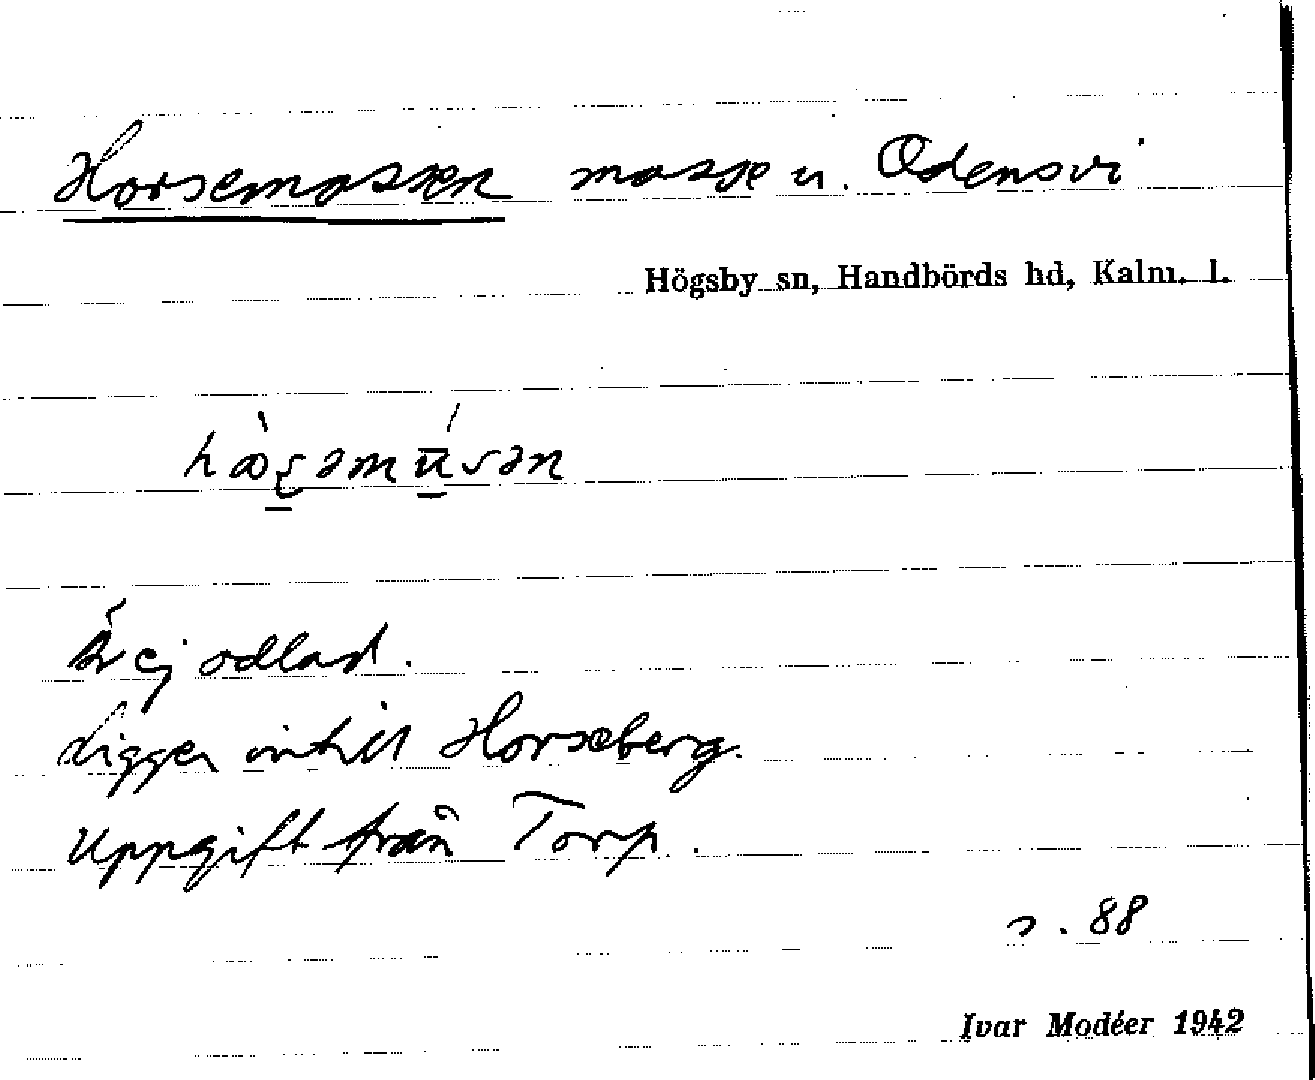 Horsemossen mosse u. Odensvi
Högsby sn, Handbörds hd, Kalm. l.
Är ej odlad.
Ligger intill Horseberg.
Uppgift från Torp.
s. 88
Ivar Modéer 1942